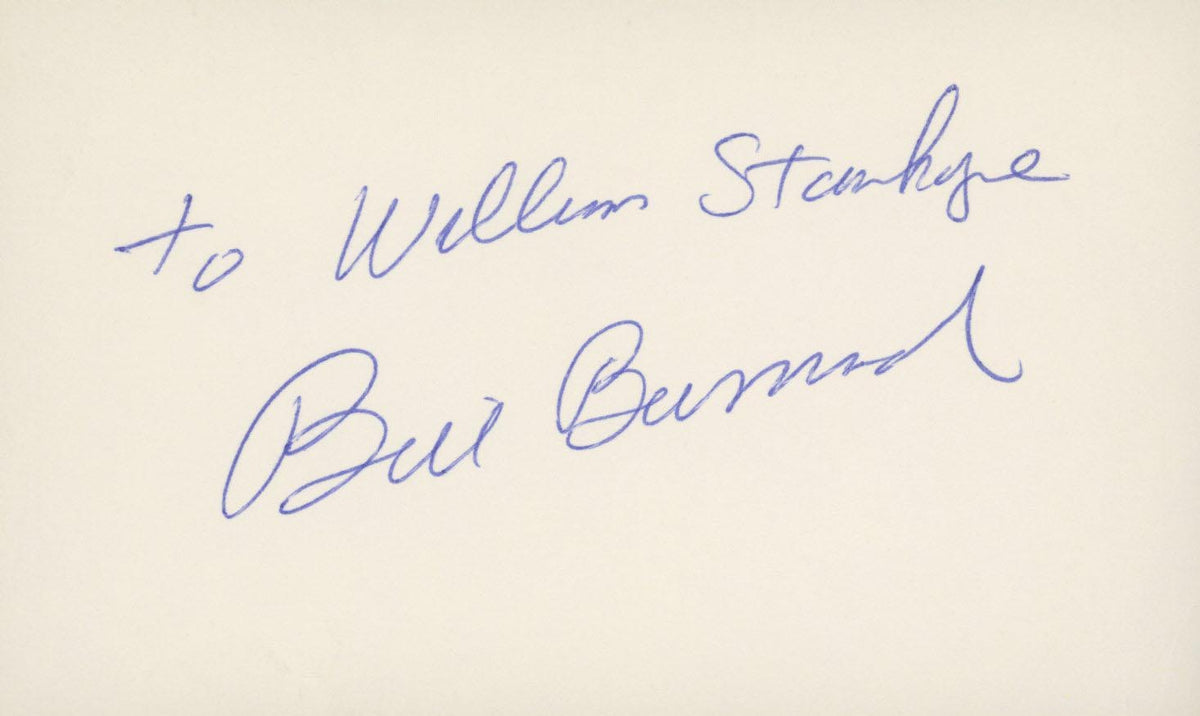 to William Stankye
Bill Burrud